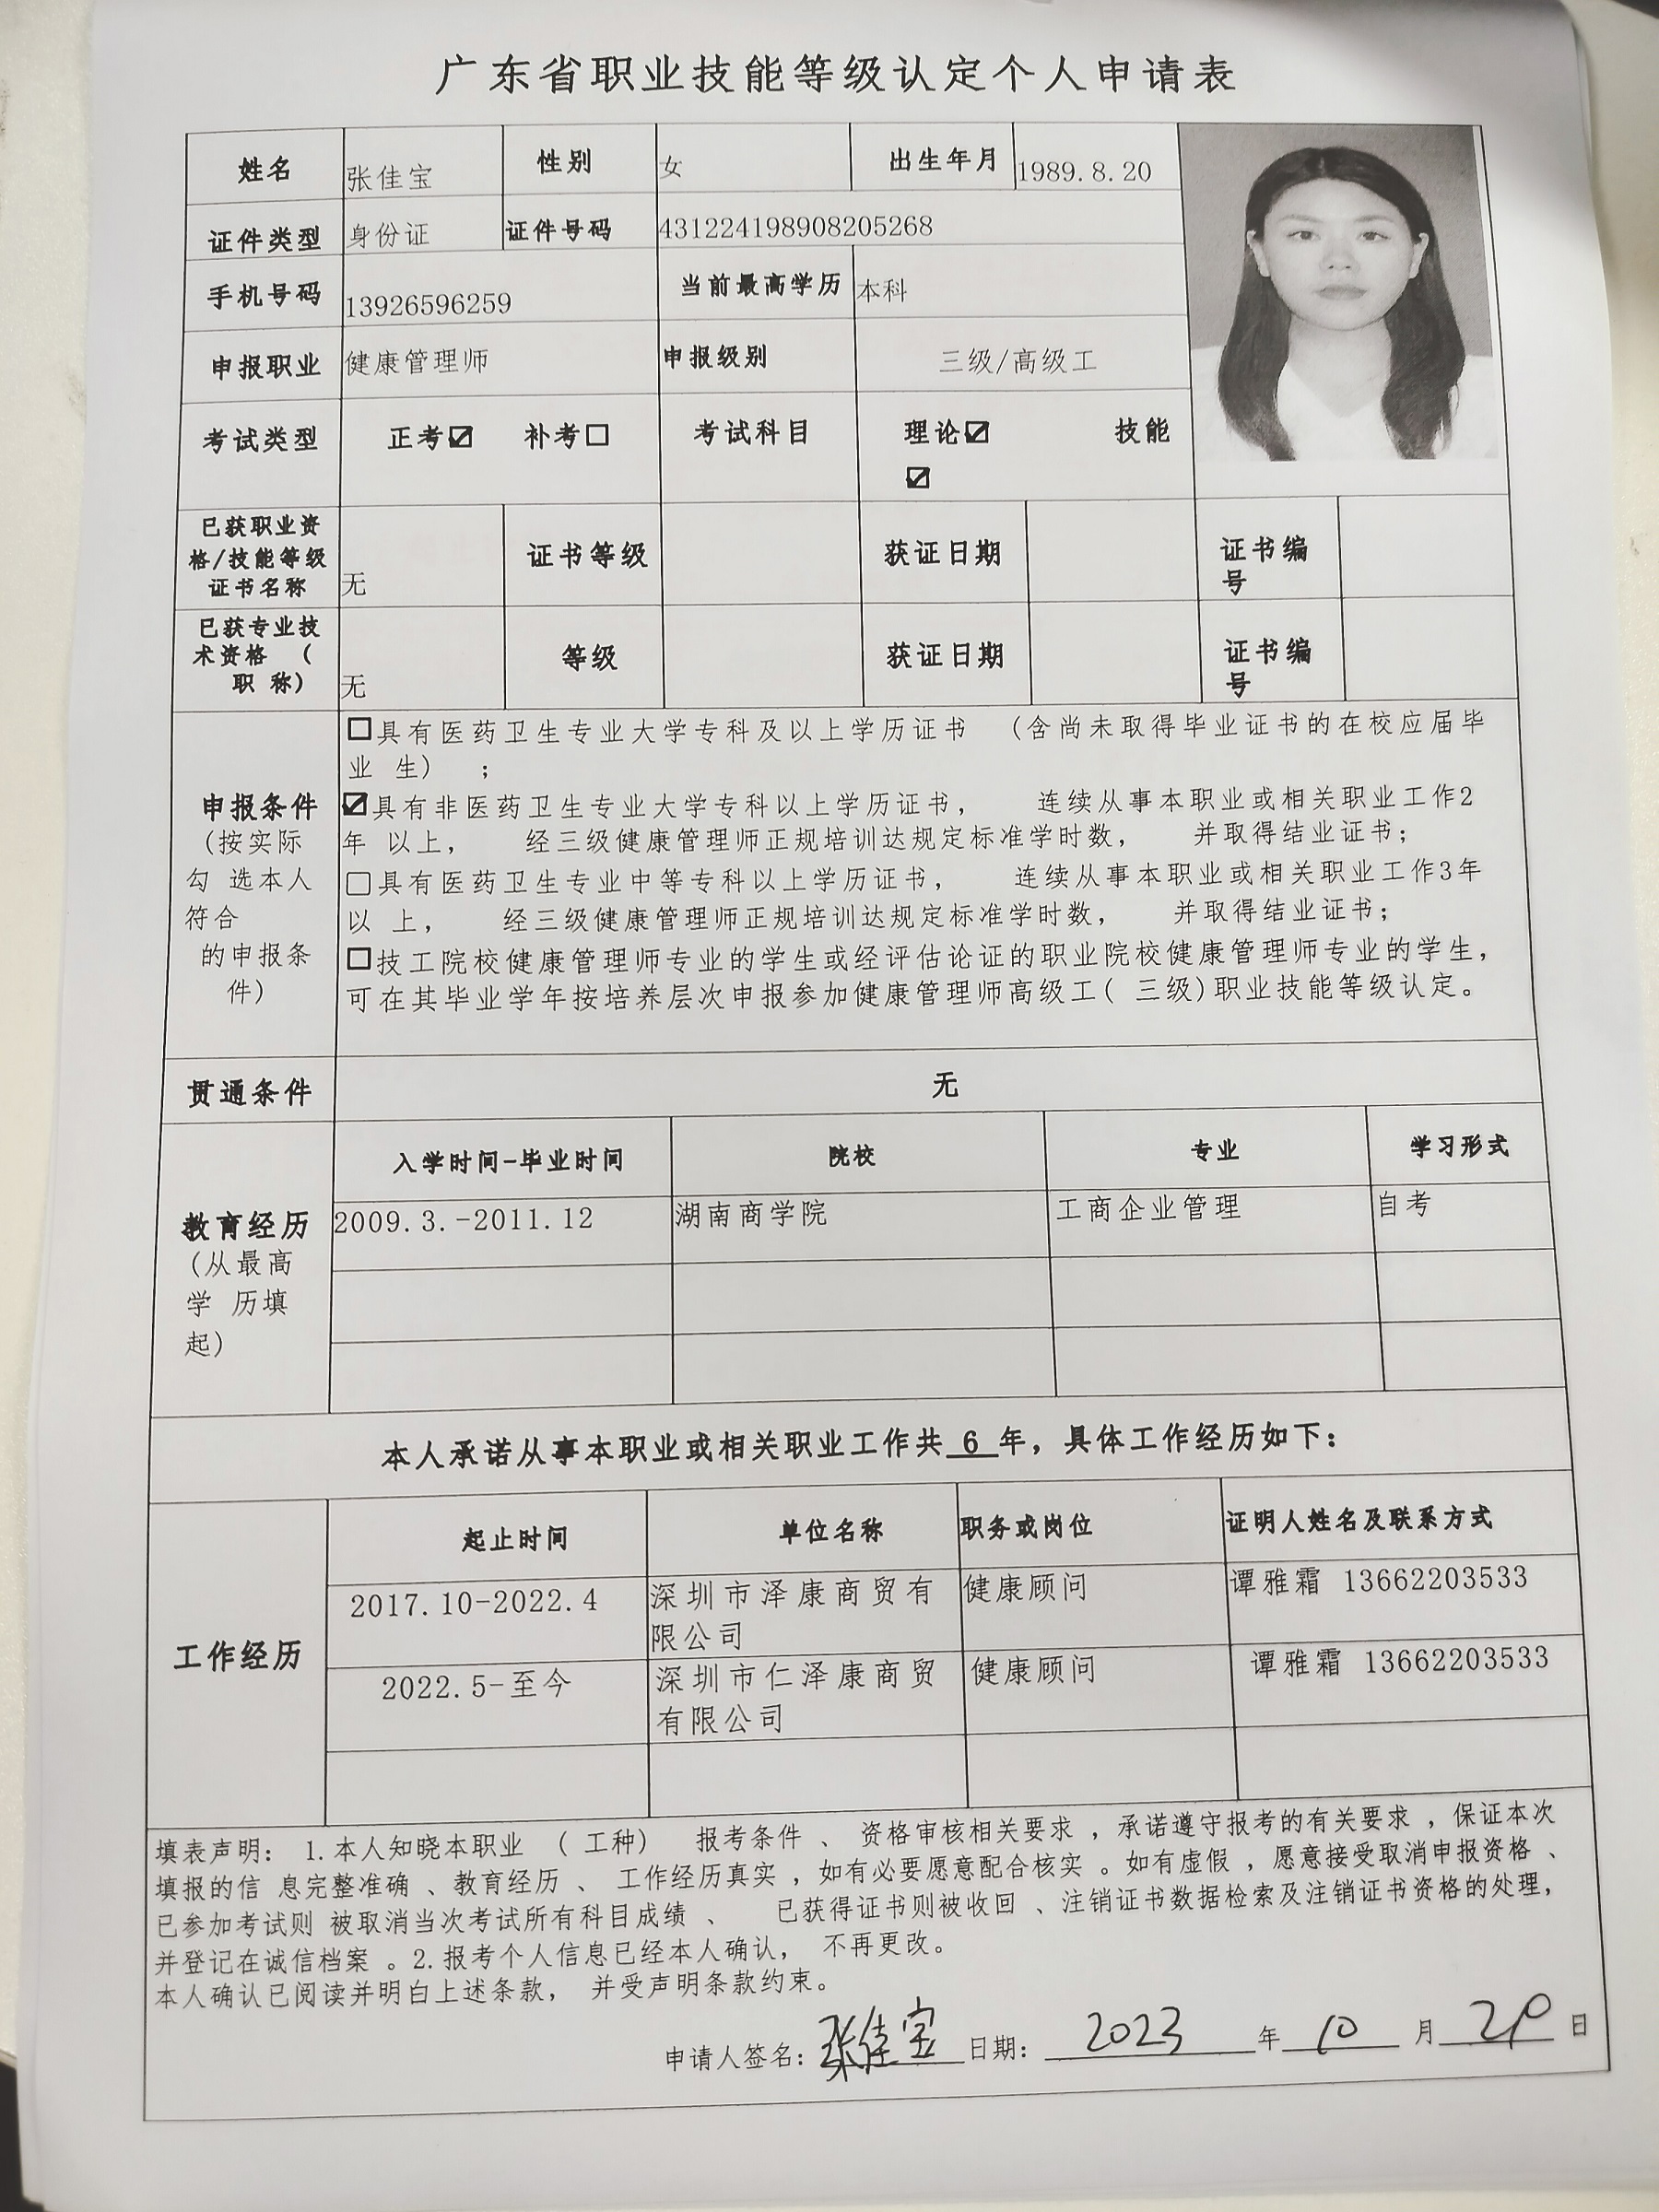 广东省职业技能等级认定个人申请表
姓名 张佳宝 性别 女 出生年月 1989.8.20
证件类型 身份证 证件号码 431224198908205268
手机号码 13926596259 当前最高学历 本科
申报职业 健康管理师 申报级别 三级/高级工
考试类型 正考☑ 补考□ 考试科目 理论☑ 技能
☑
已获职业资
格/技能等级
证书名称 无 证书等级 获证日期 证书编
号
已获专业技
术资格 (
职 称) 无 等级 获证日期 证书编
号
申报条件
(按实际
勾 选本人
符合
的申报条
件)
□具有医药卫生专业大学专科及以上学历证书 (含尚未取得毕业证书的在校应届毕
业 生) ;
☑具有非医药卫生专业大学专科以上学历证书, 连续从事本职业或相关职业工作2
年 以上, 经三级健康管理师正规培训达规定标准学时数, 并取得结业证书;
□具有医药卫生专业中等专科以上学历证书, 连续从事本职业或相关职业工作3年
以 上, 经三级健康管理师正规培训达规定标准学时数, 并取得结业证书;
□技工院校健康管理师专业的学生或经评估论证的职业院校健康管理师专业的学生,
可在其毕业学年按培养层次申报参加健康管理师高级工( 三级)职业技能等级认定。
贯通条件 无
教育经历
(从最高
学 历填
起)
入学时间-毕业时间 院校 专业 学习形式
2009.3.-2011.12 湖南商学院 工商企业管理 自考
本人承诺从事本职业或相关职业工作共 6 年, 具体工作经历如下:
工作经历
起止时间 单位名称 职务或岗位 证明人姓名及联系方式
2017.10-2022.4 深圳市泽康商贸有
限公司 健康顾问 谭雅霜 13662203533
2022.5-至今 深圳市仁泽康商贸
有限公司 健康顾问 谭雅霜 13662203533
填表声明: 1.本人知晓本职业 ( 工种) 报考条件 、 资格审核相关要求 , 承诺遵守报考的有关要求 , 保证本次
填报的信 息完整准确 、教育经历 、 工作经历真实 , 如有必要愿意配合核实 。如有虚假 , 愿意接受取消申报资格 、
已参加考试则 被取消当次考试所有科目成绩 、 已获得证书则被收回 、注销证书数据检索及注销证书资格的处理,
并登记在诚信档案 。2.报考个人信息已经本人确认, 不再更改。
本人确认已阅读并明白上述条款, 并受声明条款约束。
申请人签名: 张佳宝 日期: 2023 年 10 月 20 日